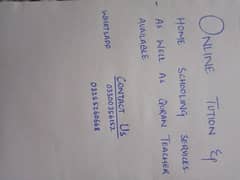 ONLINE TUTION &
HOME SCHOOLING SERVICES
AS WELL AS QURAN TEACHER
AVAILABLE
CONTACT US
03300256152
03265260668
WHATSAPP